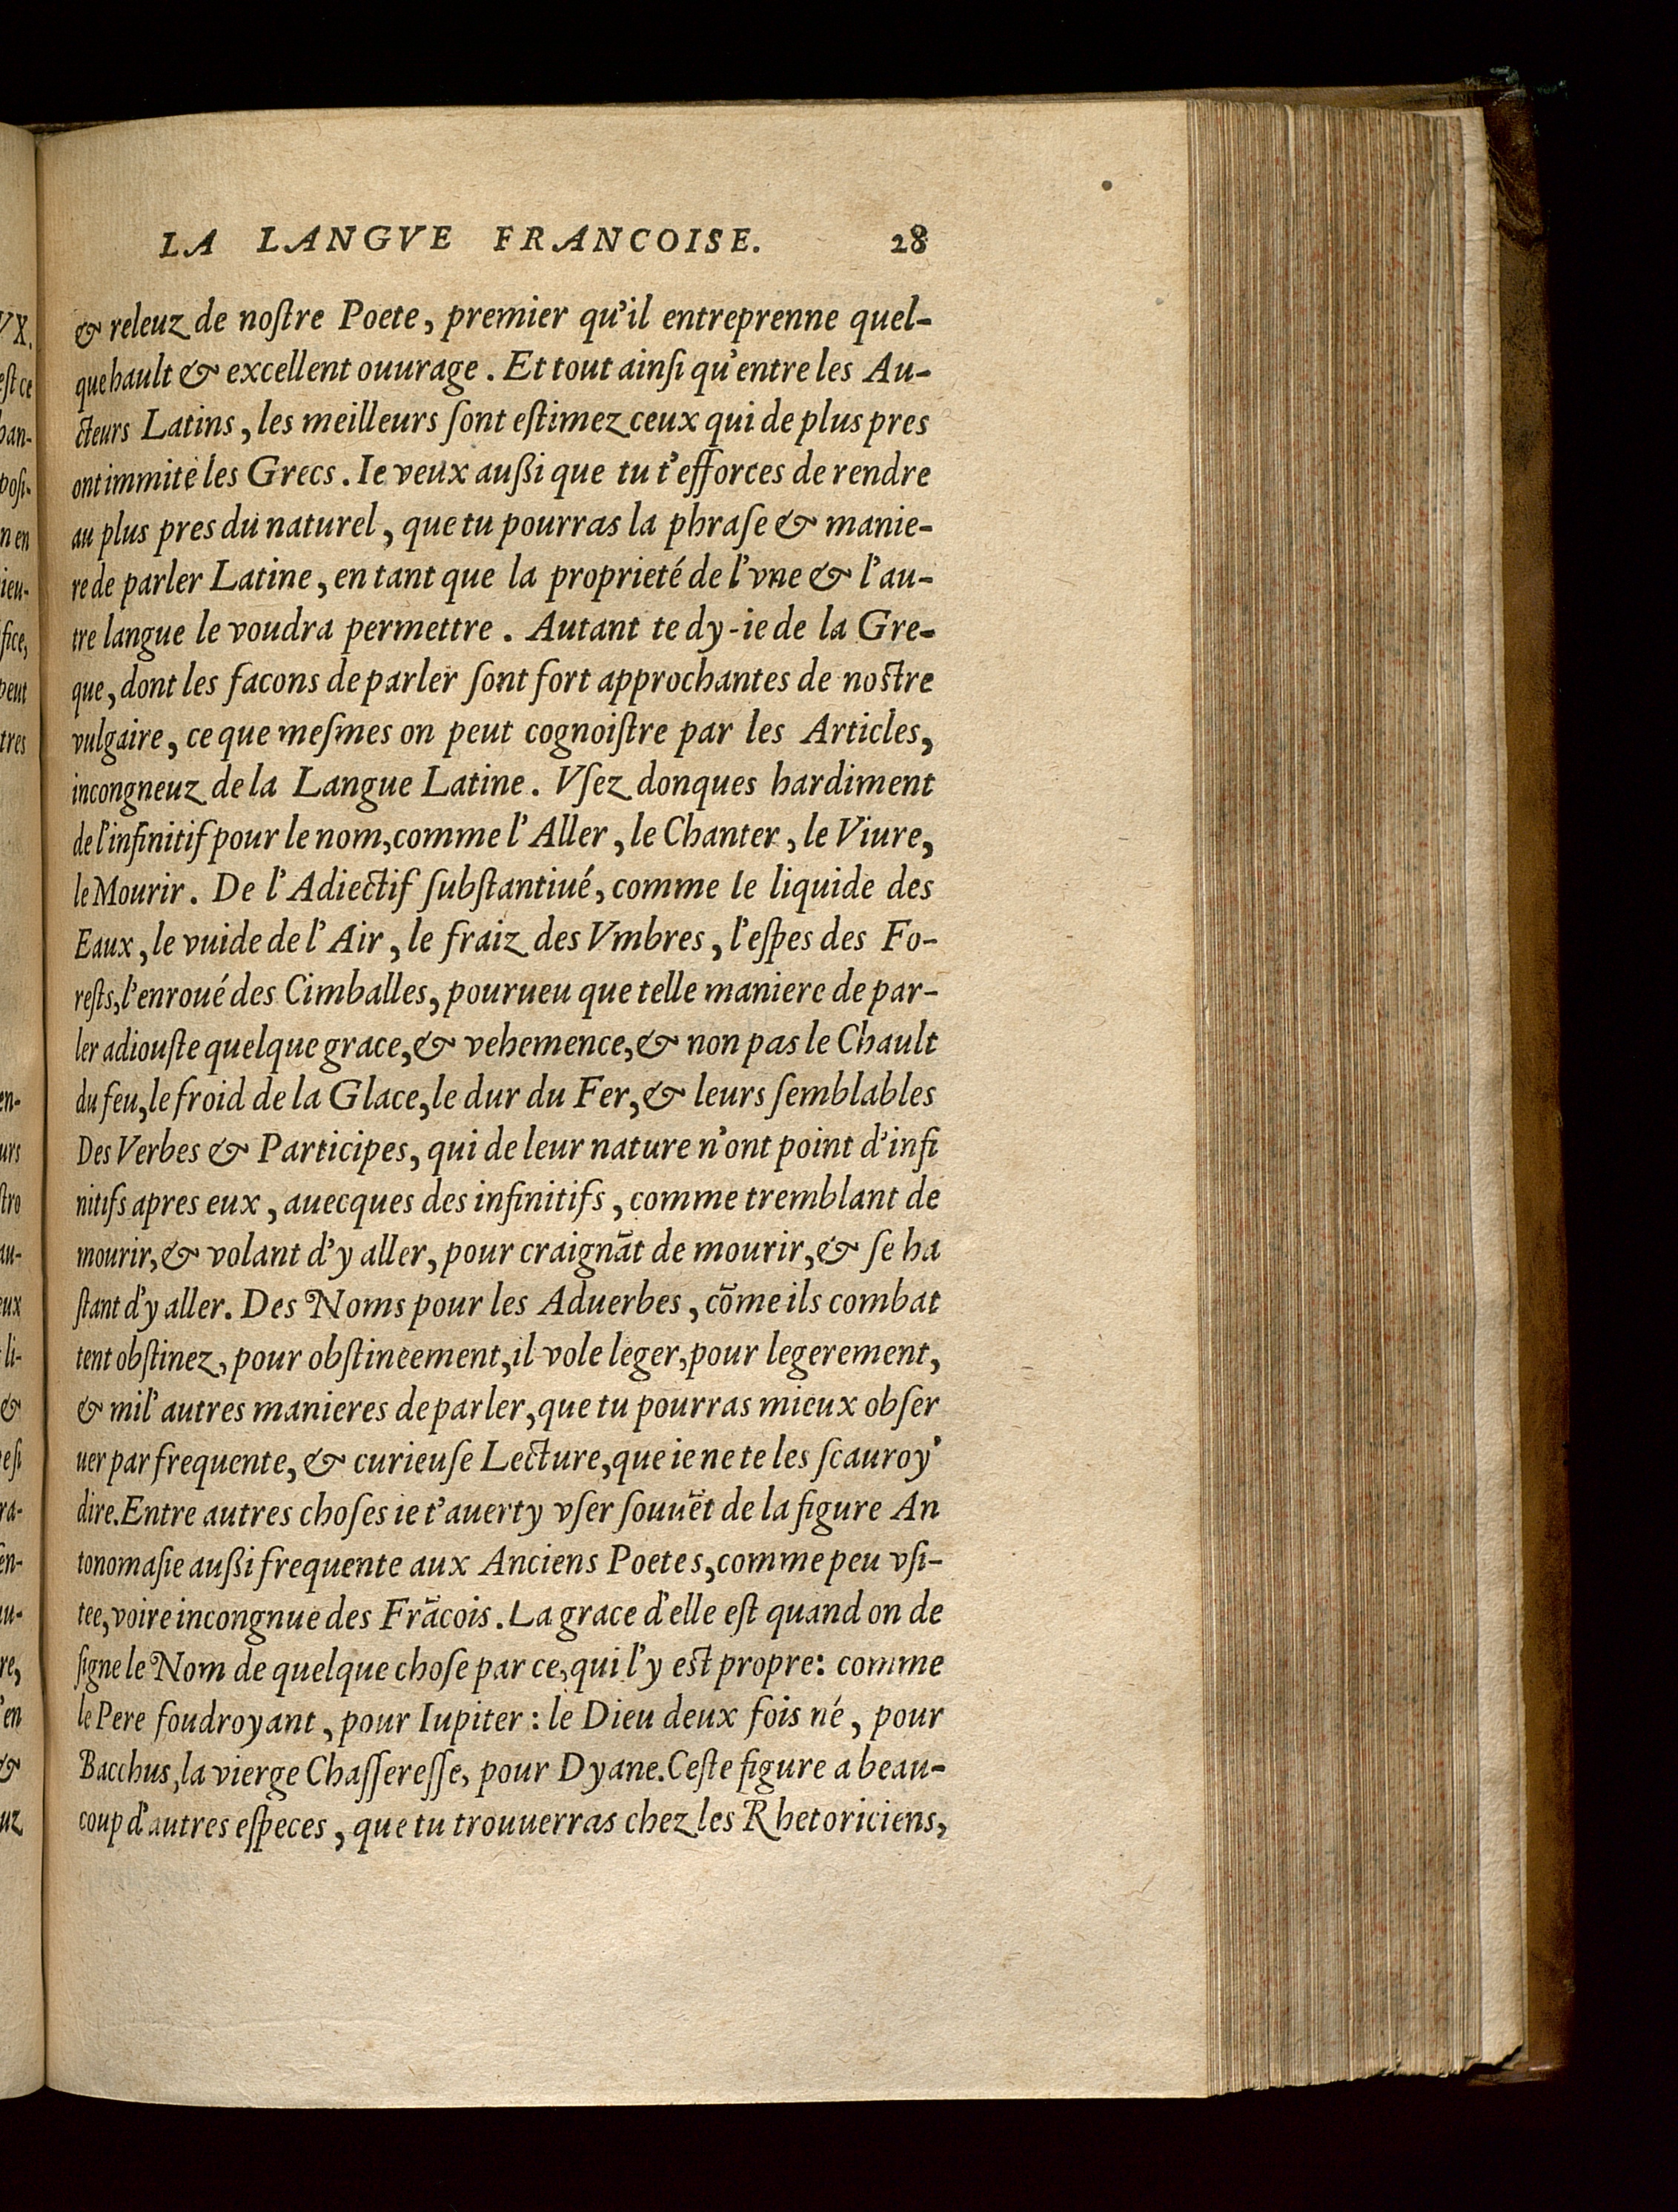 LA LANGVE FRANCOISE. 28
& releuz de noſtre Poete, premier qu'il entreprenne quel-
que hault & excellent ouurage. Et tout ainſi qu'entre les Au-
cteurs Latins, les meilleurs ſont eſtimez ceux qui de plus pres
ont immité les Grecs. Ie veux außi que tu t'efforces de rendre
au plus pres du naturel, que tu pourras la phraſe & manie-
re de parler Latine, en tant que la proprieté de l'vne & l'au-
tre langue le voudra permettre. Autant te dy-ie de la Gre-
que, dont les facons de parler ſont fort approchantes de noſtre
vulgaire, ce que meſmes on peut cognoiſtre par les Articles,
incongneuz de la Langue Latine. Vſez donques hardiment
de l'infinitif pour le nom, comme l'Aller, le Chanter, le Viure,
le Mourir. De l'Adiectif ſubſtantiué, comme le liquide des
Eaux, le vuide de l'Air, le fraiz des Vmbres, l'eſpes des Fo-
reſts, l'enroué des Cimballes, pourueu que telle maniere de par-
ler adiouſte quelque grace, & vehemence, & non pas le Chault
du feu, le froid de la Glace, le dur du Fer, & leurs ſemblables
Des Verbes & Participes, qui de leur nature n'ont point d'infi
nitifs apres eux, auecques des infinitifs, comme tremblant de
mourir, & volant d'y aller, pour craignãt de mourir, & ſe ha
ſtant d'y aller. Des Noms pour les Aduerbes, cõme ils combat
tent obſtinez, pour obſtinéement, il vole leger, pour legerement,
& mil' autres manieres de parler, que tu pourras mieux obſer
uer par frequente, & curieuſe Lecture, que ie ne te les ſcauroy'
dire. Entre autres choſes ie t'auerty vſer ſouuẽt de la figure An
tonomaſie außi frequente aux Anciens Poetes, comme peu vſi-
tee, voire incongnue des Frãcois. La grace d'elle eſt quand on de
ſigne le Nom de quelque choſe par ce, qui l'y eſt propre: comme
le Pere foudroyant, pour Iupiter: le Dieu deux fois né, pour
Bacchus, la vierge Chaſſereſſe, pour Dyane. Ceſte figure a beau-
coup d'autres eſpeces, que tu trouuerras chez les Rhetoriciens,